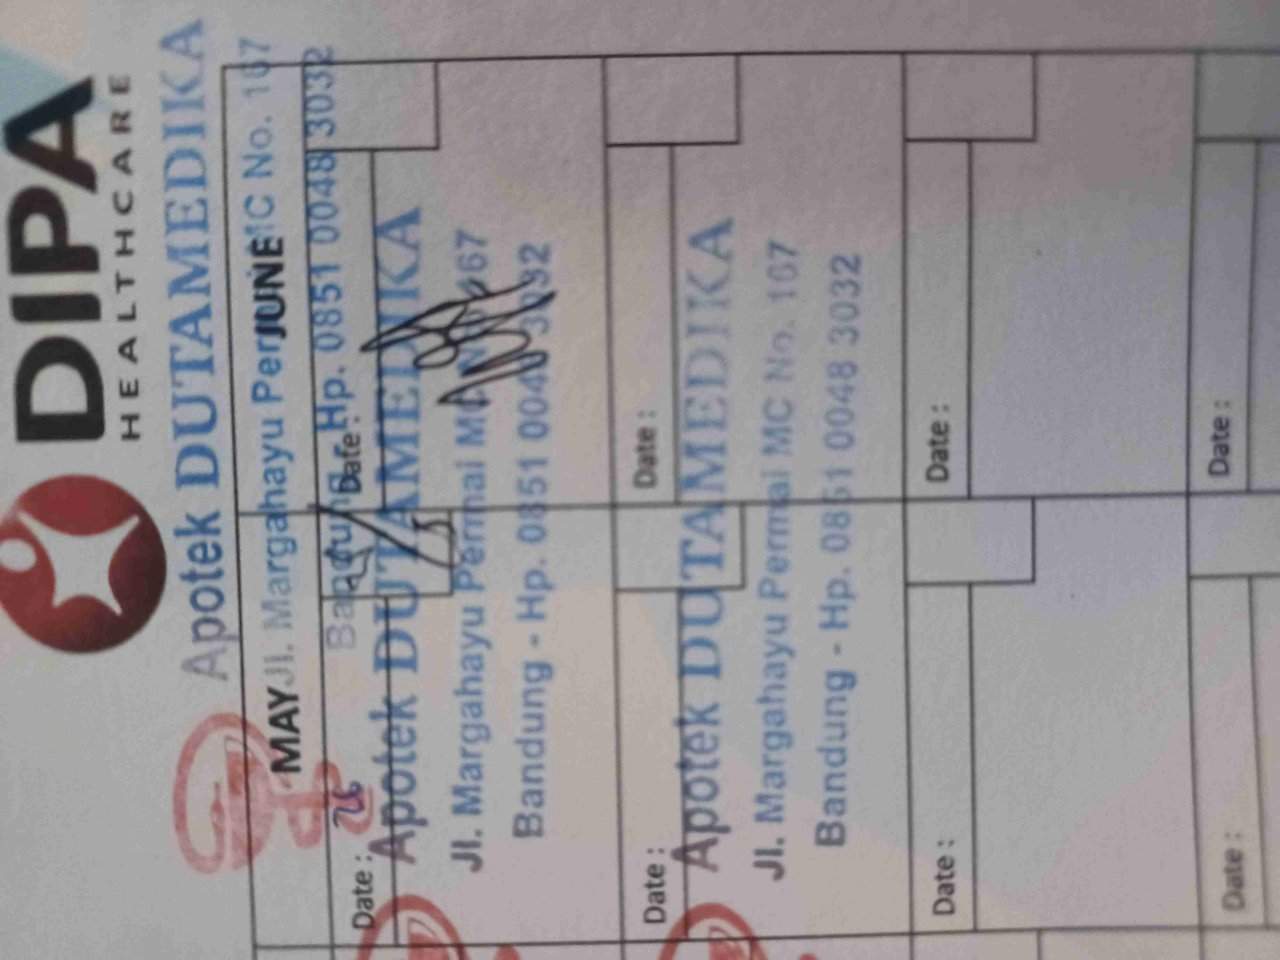 DIPA
HEALTHCARE
Apotek DUTAMEDIKA
Jl. Margahayu Permai MC No. 167
MAY
JUNE
Bandung - Hp. 0851 0048 3032
Date : 26
Date :
Apotek DUTAMEDIKA
Jl. Margahayu Permai MC No. 167
Bandung - Hp. 0851 0048 3032
Date :
Date :
Apotek DUTAMEDIKA
Jl. Margahayu Permai MC No. 167
Bandung - Hp. 0851 0048 3032
Date :
Date :
Date :
Date :